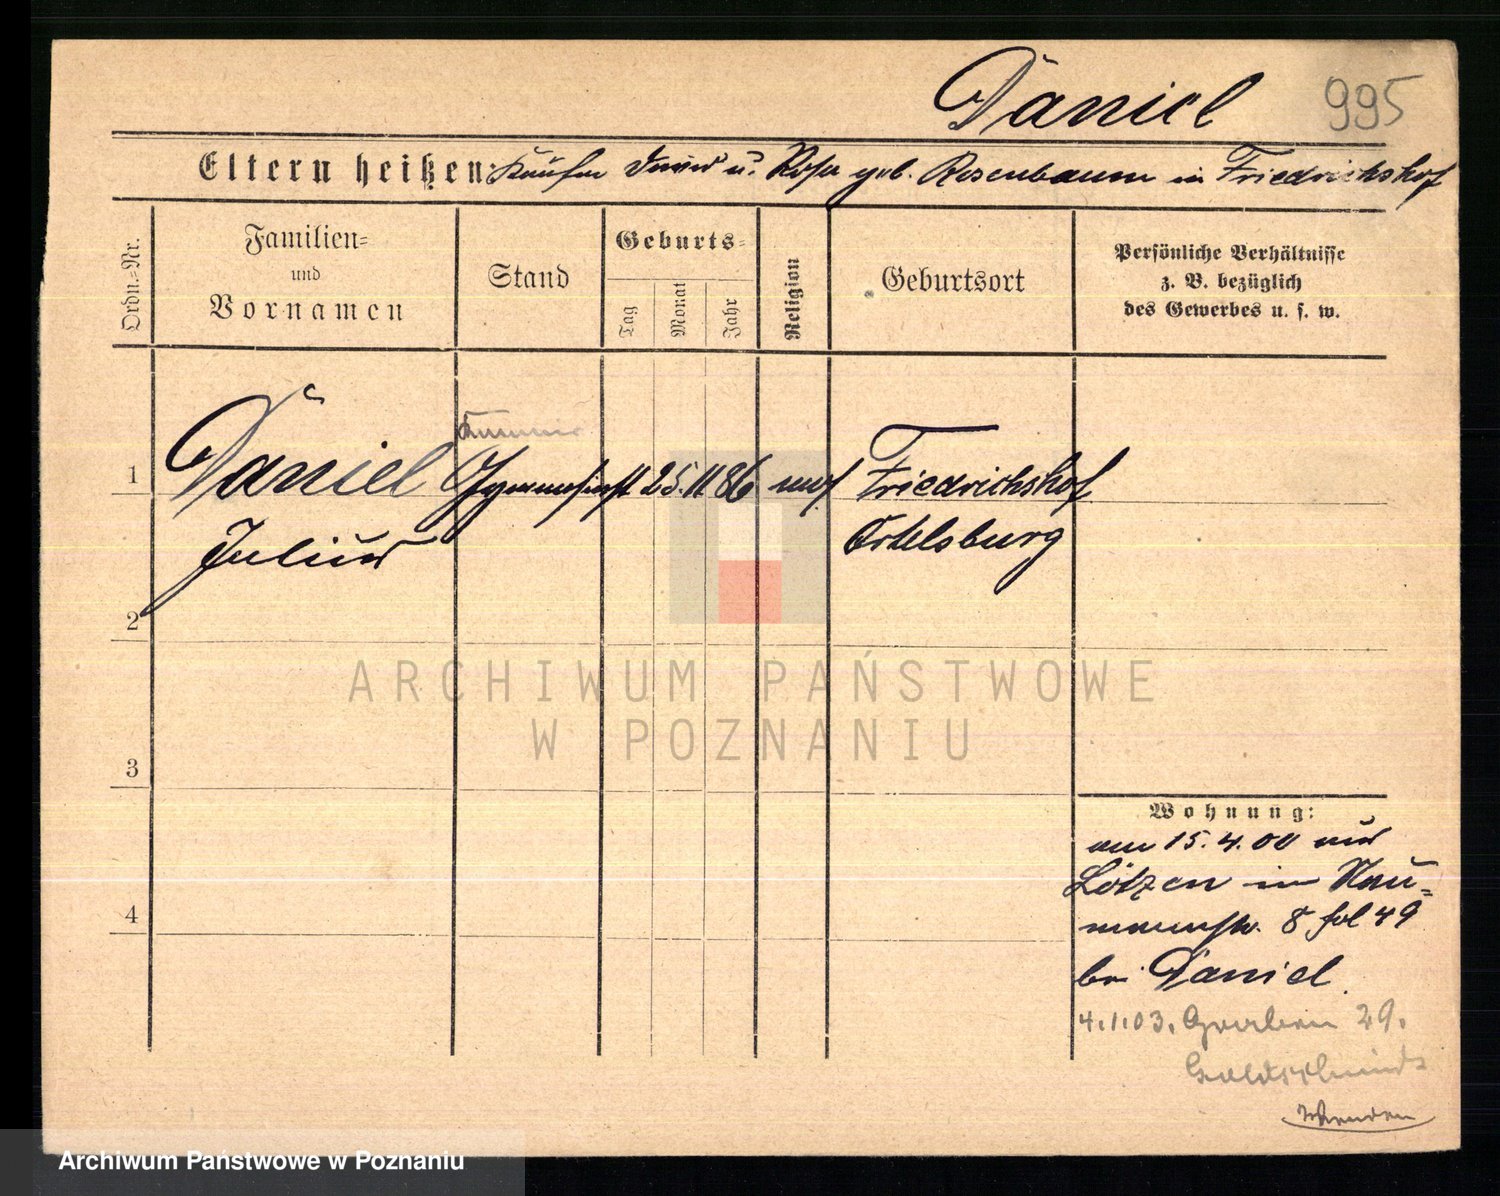 Daniel 995
Eltern heißen: Kaufm David u. Rosa geb. Rosenbaum in Friedrichshof
Ordn.=Nr.
Familien=
und
Vornamen
Stand
Geburts=
Tag
Monat
Jahr
Religion
Geburtsort
Persönliche Verhältnisse
z. B. bezüglich
des Gewerbes u. s. w.
1 Daniel Gymnasiast 25. 11 86 mos Friedrichshof
Julius Ortelsburg
2
ARCHIWUM PAŃSTWOWE
W POZNANIU
3
Wohnung:
am 15. 4. 00 aus
Lötzen in Nau=
mannstr. 8 fol 49
bei Daniel.
4
4.1.03. Graben 29.
Goldschmidt
Wenden
Archiwum Państwowe w Poznaniu